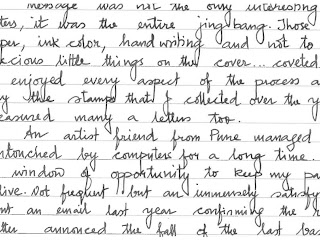 message was not the only interesting
ters, it was the entire jing bang. Those
per, ink color, handwriting and not to
cious little things on the cover... coveted
enjoyed every aspect of the process a
y the stamps that I collected over the y
easured many a letters too.
An artist friend from Pune managed
ntouched by computers for a long time.
window of opportunity to keep my pa
live. Not frequent but an immensely satisfy
nt an email last year confirming the r
tter annonced the fall of the last bas